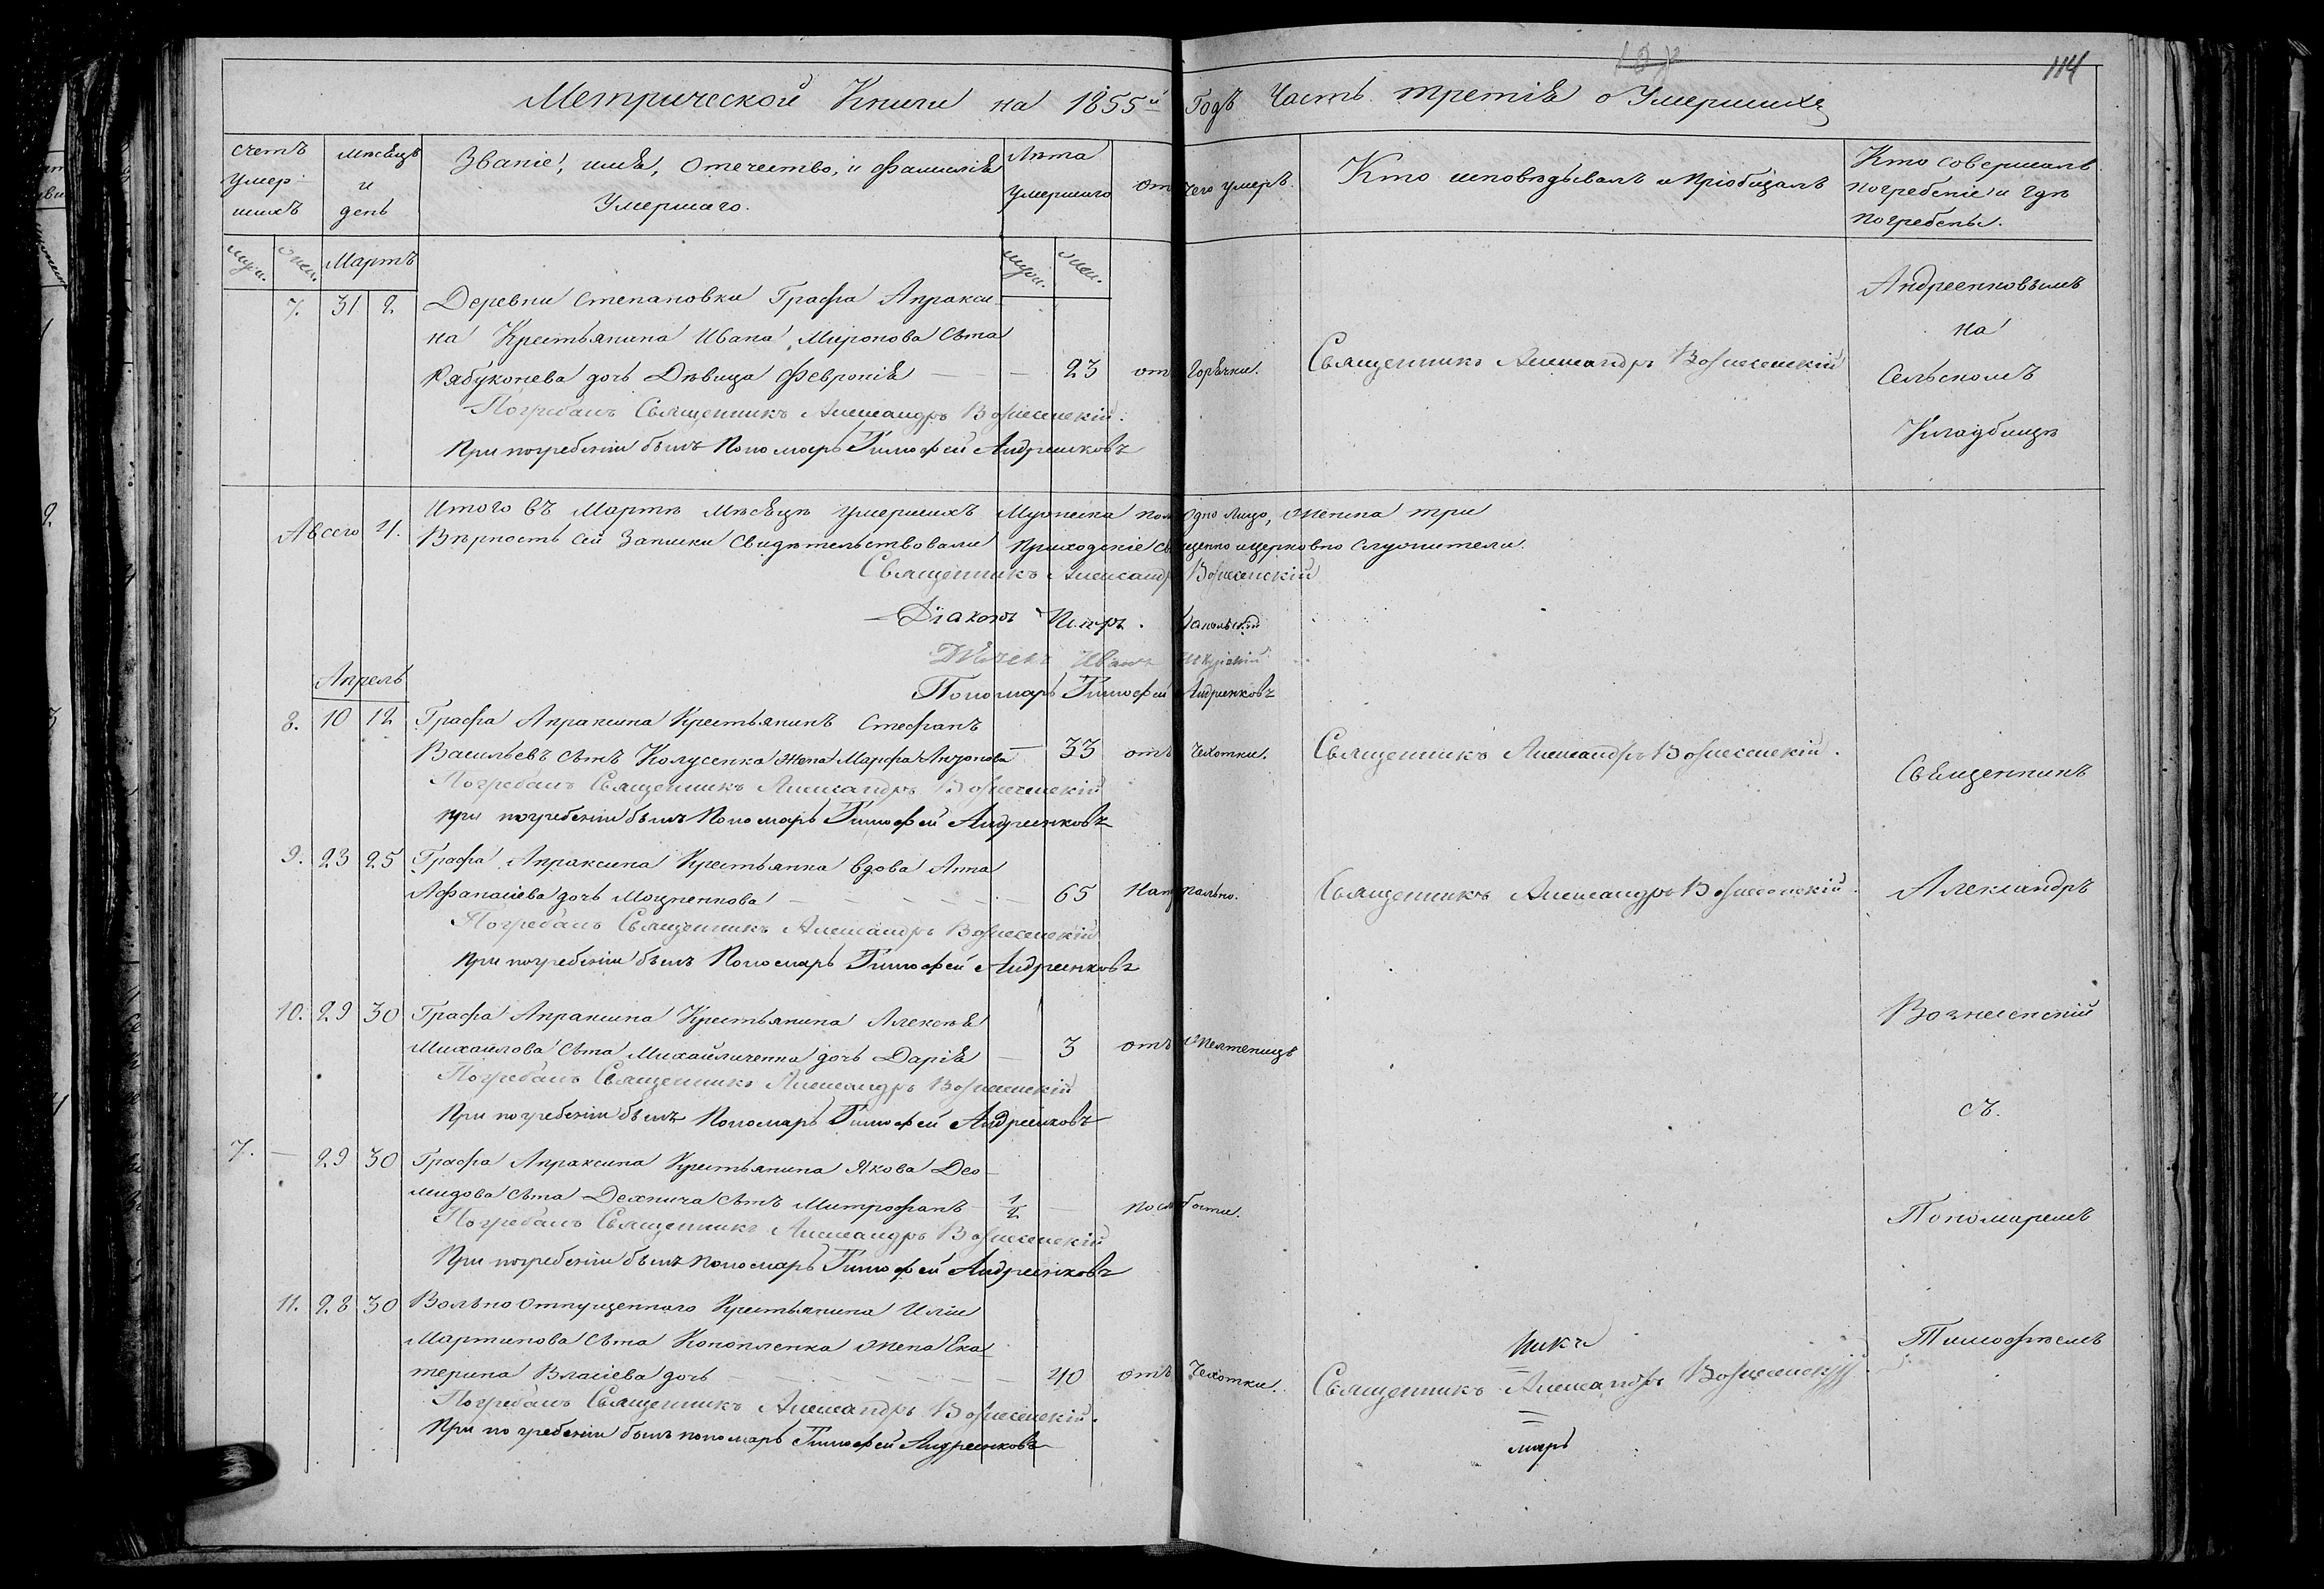 114
Метрической Книги на 1855й Годъ Часть третія о Умершихъ
Счетъ умершихъ
Мѣсяцъ и день
Званіе, имя, отечество, и фамилія Умершаго.
Лѣта умершаго
отъ чего умеръ.
Кто исповѣдывалъ и пріобщалъ
Кто совершалъ погребеніе и гдѣ погребены.
муж. жен. Мартъ муж. жен.
7. 31 2 Деревни Степановки Графа Апракси
на Крестьянина Ивана Миронова сына
Рябуконева дочь Дѣвица Февронія — — 23 отъ Горѣчки. Священникъ Александръ Вознесенскій
Погребалъ Священникъ Александръ Вознесенскій.
При погребеніи былъ Пономарь Тимофей Андреенковъ
Андреенковымъ
на
Сельскомъ
Кладбищѣ
Итого въ Мартѣ Мѣсяцѣ умершихъ Мужеска пола Одно лицо, Женска три
А всего 4. Вѣрность сей Записки свидѣтельствовали Приходскіе священно церковно служители.
Священникъ Александръ Вознесенскій
Діаконъ Петръ
Дьячекъ Иванъ
Пономарь Тимофей Андреенковъ
Апрель
8. 10 12 Графа Апраксина Крестьянинъ Стефанъ
Васильевъ сынъ Колусенка жена Марфа Антонова — 33 отъ Чехотки. Священникъ Александръ Вознесенскій.
Погребалъ Священникъ Александръ Вознесенскій
при погребеніи былъ Пономарь Тимофей Андреенковъ
9. 23 25 Графа Апраксина Крестьянка вдова Анна
Афанасіева дочь Моцненкова — 65 Натурально. Священникъ Александръ Вознесенскій.
Погребалъ Священникъ Александръ Вознесенскій
При погребеніи былъ Пономарь Тимофей Андреенковъ
10. 29 30 Графа Апраксина Крестьянина Алексѣя
Михайлова сына Михайличенка дочь Дарія — 3 отъ
Погребалъ Священникъ Александръ Вознесенскій
При погребеніи былъ Пономарь Тимофей Андреенковъ
7. — 29 30 Графа Апраксина Крестьянина Якова Део
мидова сына Дехнича сынъ Митрофанъ 1/2 — по слабости.
Погребалъ Священникъ Александръ Вознесенскій
При погребеніи былъ пономарь Тимофей Андреенковъ
11. 28 30 Вольно отпущенного Крестьянина Иліи
Мартинова сына Конопленка жена Ека
терина Власіева дочь — 40 отъ Чехотки. Священникъ Александръ Вознесенскій
Погребалъ Священникъ Александръ Вознесенскій.
При погребеніи былъ пономарь Тимофей Андреенковъ
никъ
марь
Священникъ
Александръ
Вознесенскій
съ.
Пономаремъ
Тимофѣемъ